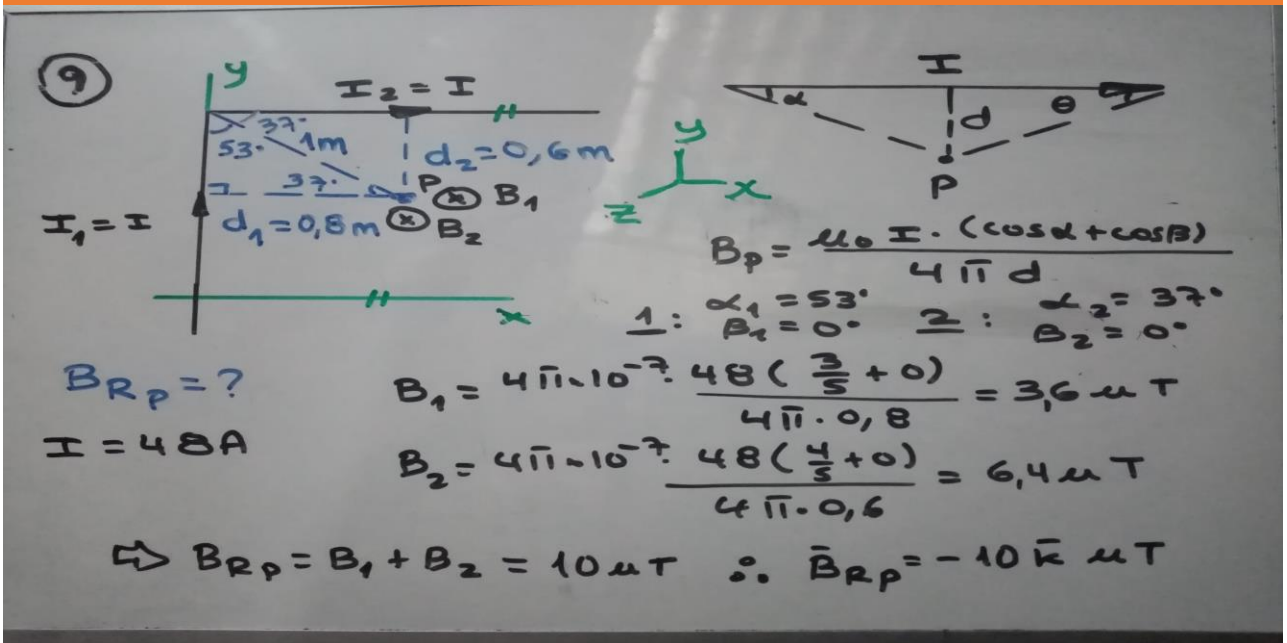 9
y
I₂ = I
37°
53°
1m
d₂=0,6m
37°
P
B₁
I₁ = I
d₁=0,8m
B₂
x
I
α
d
θ
P
y
x
z
Bₚ = μ₀ I. (cosα + cosβ) / 4 π d
1: α₁ = 53° β₁ = 0°
2: α₂ = 37° β₂ = 0°
B_Rₚ = ?
I = 48A
B₁ = 4π.10⁻⁷. 48 ( 3/5 + 0) / 4π. 0,8 = 3,6 μT
B₂ = 4π.10⁻⁷. 48 ( 4/5 + 0) / 4π. 0,6 = 6,4 μT
⇨ B_Rₚ = B₁ + B₂ = 10 μT ∴ B̄_Rₚ = - 10 k̄ μT